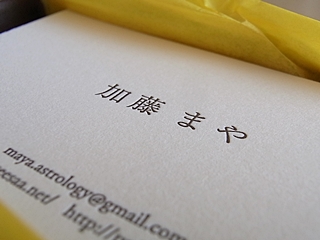 加藤 まや
maya.astrology@gmail.com
http://